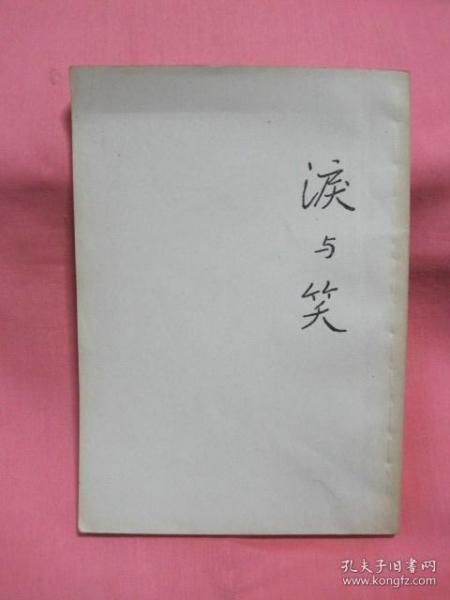 淚与笑
孔夫子旧书网
www.kongfz.com